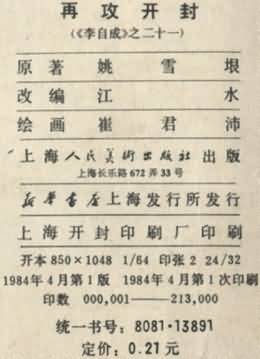 再攻开封
(《李自成》之二十一)
原著 姚雪垠
改编 江水
绘画 崔君沛
上海人民美术出版社出版
上海长乐路672弄33号
新华书店上海发行所发行
上海开封印刷厂印刷
开本850×1048 1/64 印张2 24/32
1984年4月第1版 1984年4月第1次印刷
印数 000,001——213,000
统一书号：8081·13891
定价：0.21元